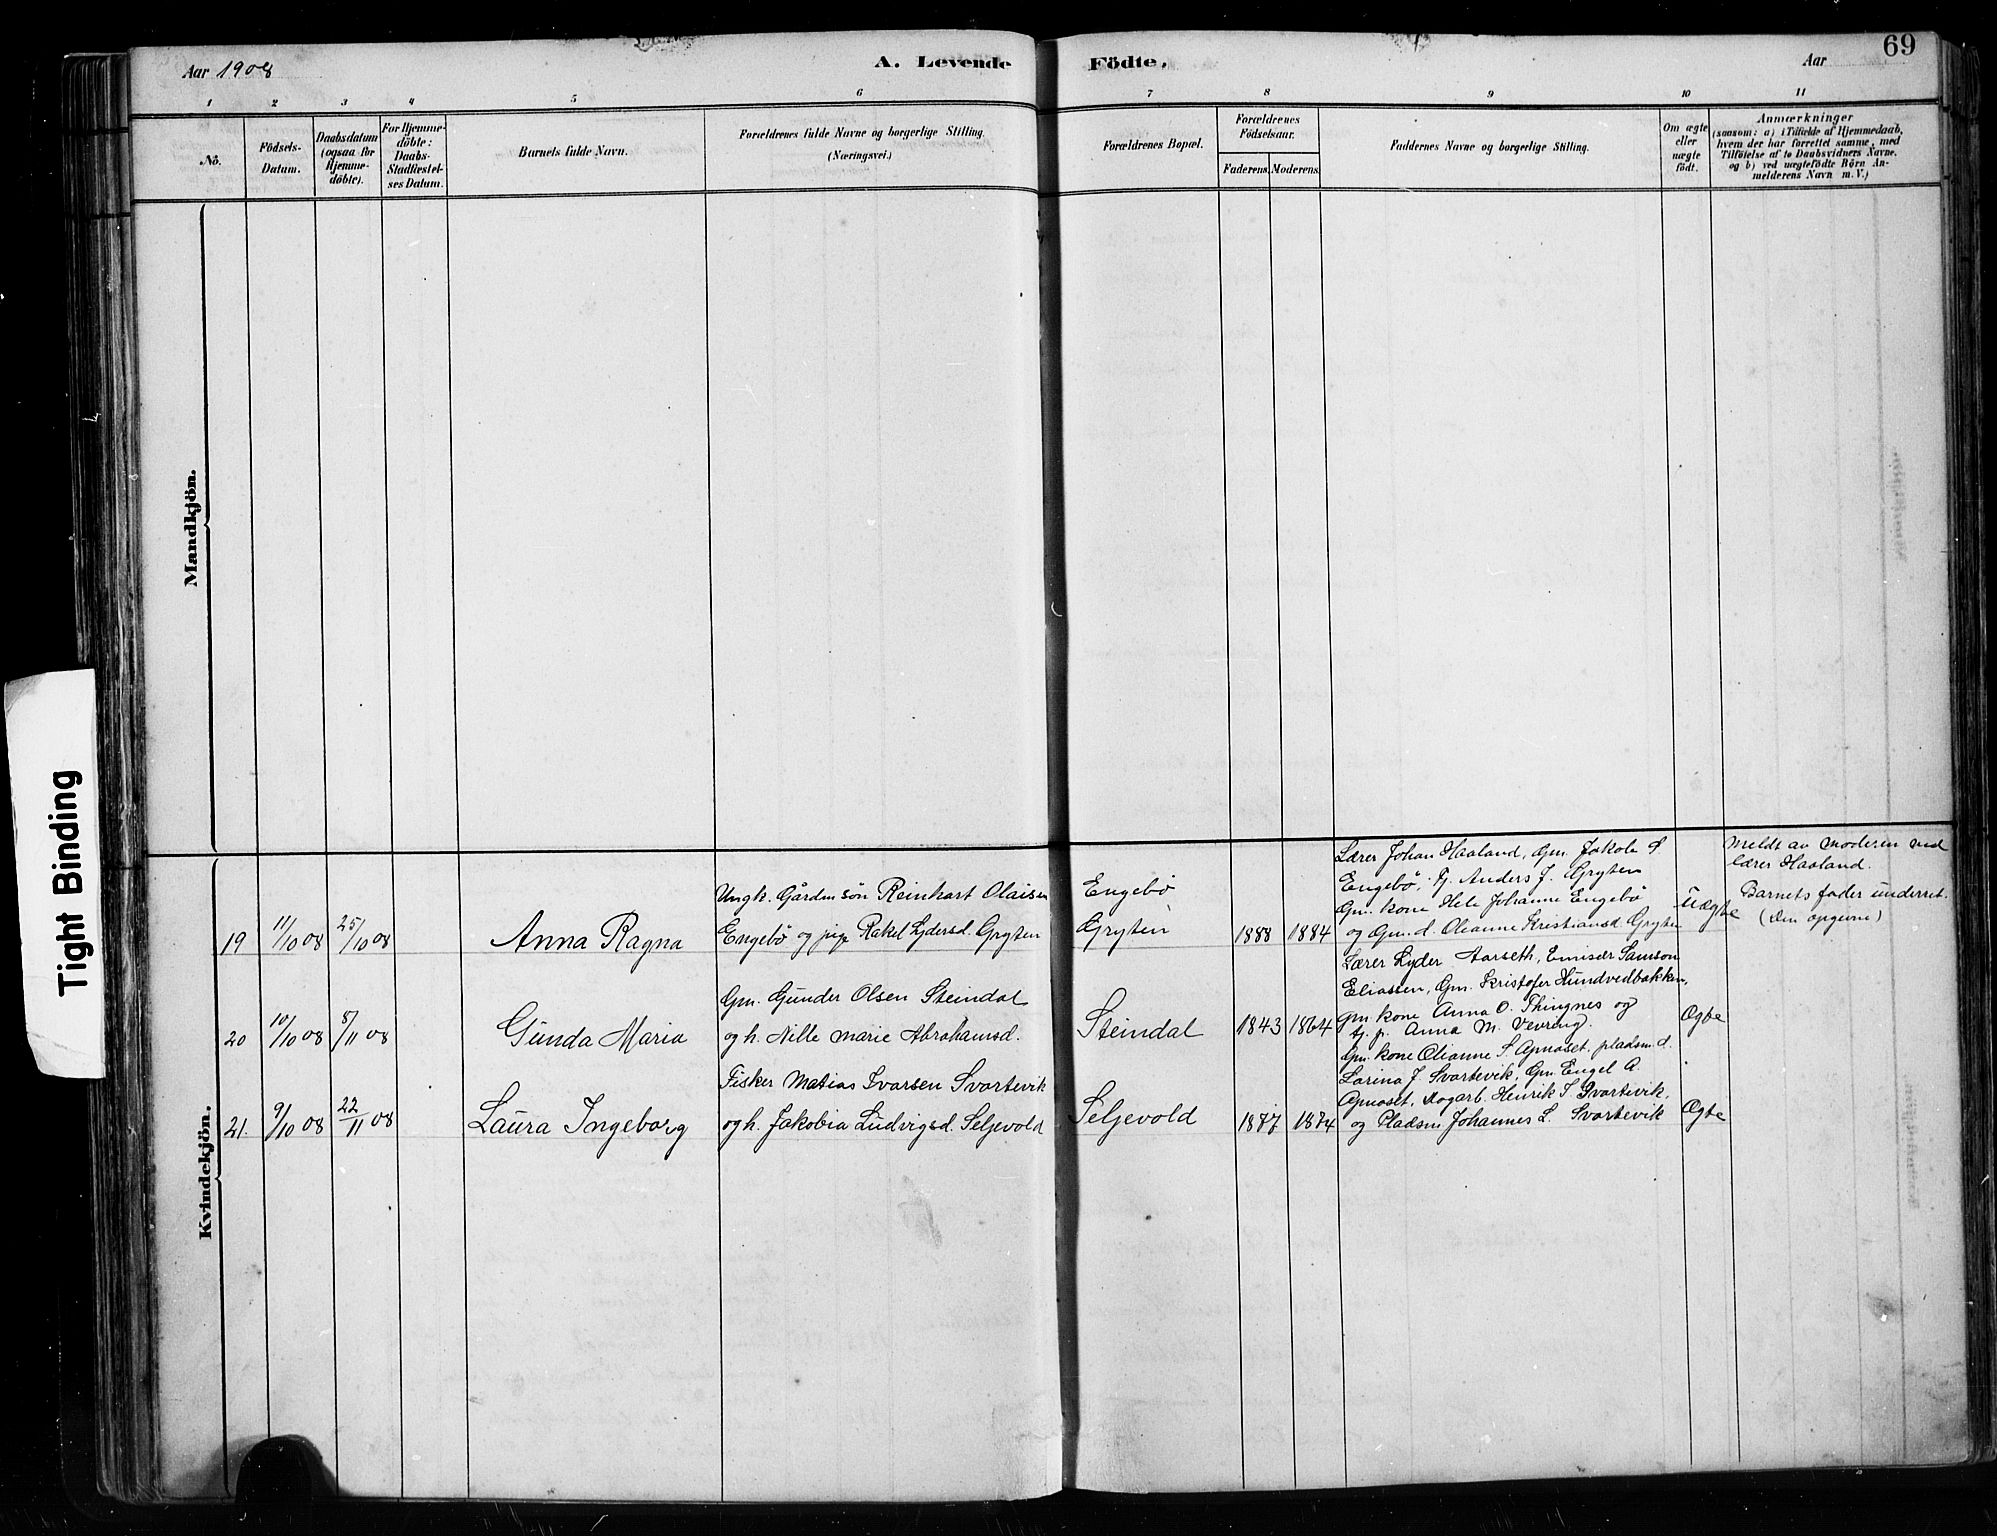 Aar 1908
A. Levende
Födte.
Aar
69
1
2
3
4
5
6
7
8
9
10
11
No.
Födsels-
Datum.
Daabsdatum
(ogsaa for
Hjemme-
döbte).
For Hjemme-
döbte:
Daabs-
Stadfæstel-
ses Datum.
Barnets fulde Navn.
Forældrenes fulde Navne og borgerlige Stilling.
(Næringsvei.)
Forældrenes Bopæl.
Forældrenes
Födselsaar.
Faderens.
Moderens.
Faddernes Navne og borgerlige Stilling.
Om ægte
eller
uægte
födt.
Anmærkninger
(saasom: a) i Tilfælde af Hjemmedaab,
hvem der har forrettet samme, med
Tilföielse af to Daabsvidners Navne,
og b) ved uægtefödte Börn An-
melderens Navn m. V.)
Mandkjön.
Kvindekjön.
Tight Binding
19
11/10 08
25/10 08
Anna Ragna
Ungk. Gårdm søn Reinhart Olaisen
Engebø og pige Rakel Lydersd. Gryten
Engebø
Gryten
1888
1884
Lærer Johan Haaland, Gm. Jakob S
Engebø, Anders J. Gryten
Gm. kone Hele Johanne Engebø
og Gm. d. Oleanne Kristiansd. Gryten
Uægte
Meldt av moderen ved
lærer Haaland.
Barnets fader underret.
(Den opgivne)
20
10/10 08
8/11 08
Gunda Maria
Gm. Gunder Olsen Steindal
og h. Nille Marie Abrahamsd.
Steindal
1843
1864
Lærer Lyder Aarseth, Emisær Samson
Eliassen, Gm. Kristofer Hundvedbakken,
Gm kone Anna O. Thingnes og
tj. p. Anna M. Vevring.
Ægte
21.
9/10 08
22/11 08
Laura Ingeborg
Fisker Matias Ivarsen Svartevik
og h. Jakobia Ludvigsd. Seljevold
Seljevold
1887
1884
Gm. kone Olianne S. Apnaset, pladsm. d.
Larina J. Svartevik, Gm Engel A.
Apnaset, Dagarb. Henrik I. Svartevik,
og Pladsm Johannes L. Svartevik
Ægte